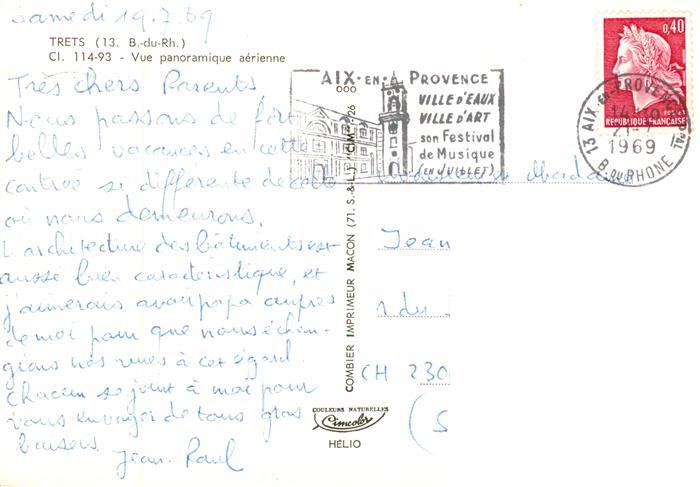 Samedi 19.7.69
TRETS (13. B.-du-Rh.)
Cl. 114-93 - Vue panoramique aérienne
Très chers Parents
Nous passons de fort
belles vacances en cette
contrée si différente de celle
où nous demeurons.
L'architecture des bâtiments est
aussi bien caractéristique, et
j'aimerais avoir papa auprès
de moi pour que nous échan-
gions nos vues à cet égard.
Chacun se joint à moi pour
vous envoyer de tous gros
baisers
Jean-Paul
AIX-EN-PROVENCE
VILLE D'EAUX
VILLE D'ART
son Festival
de Musique
(EN JUILLET)
0,40
POSTES
REPUBLIQUE FRANÇAISE
13 AIX-EN-PROVENCE PAL
21-7
1969
B. DU RHONE
COMBIER IMPRIMEUR MACON (71. S.-&-L.) "CIM"
COULEURS NATURELLES
Cimcolor
HÉLIO
Monsieur et Madame
Jean
1 du
CH 230
(S